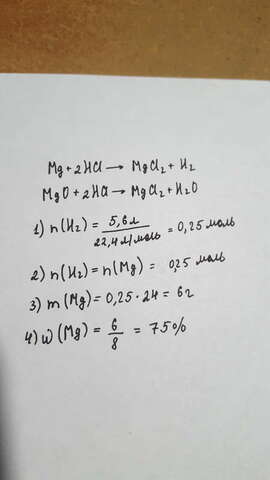 Mg + 2HCl → MgCl₂ + H₂
MgO + 2HCl → MgCl₂ + H₂O
1) n(H₂) = 5,6л / 22,4 л/моль = 0,25 моль
2) n(H₂) = n(Mg) = 0,25 моль
3) m(Mg) = 0,25 · 24 = 6г
4) ω(Mg) = 6/8 = 75%